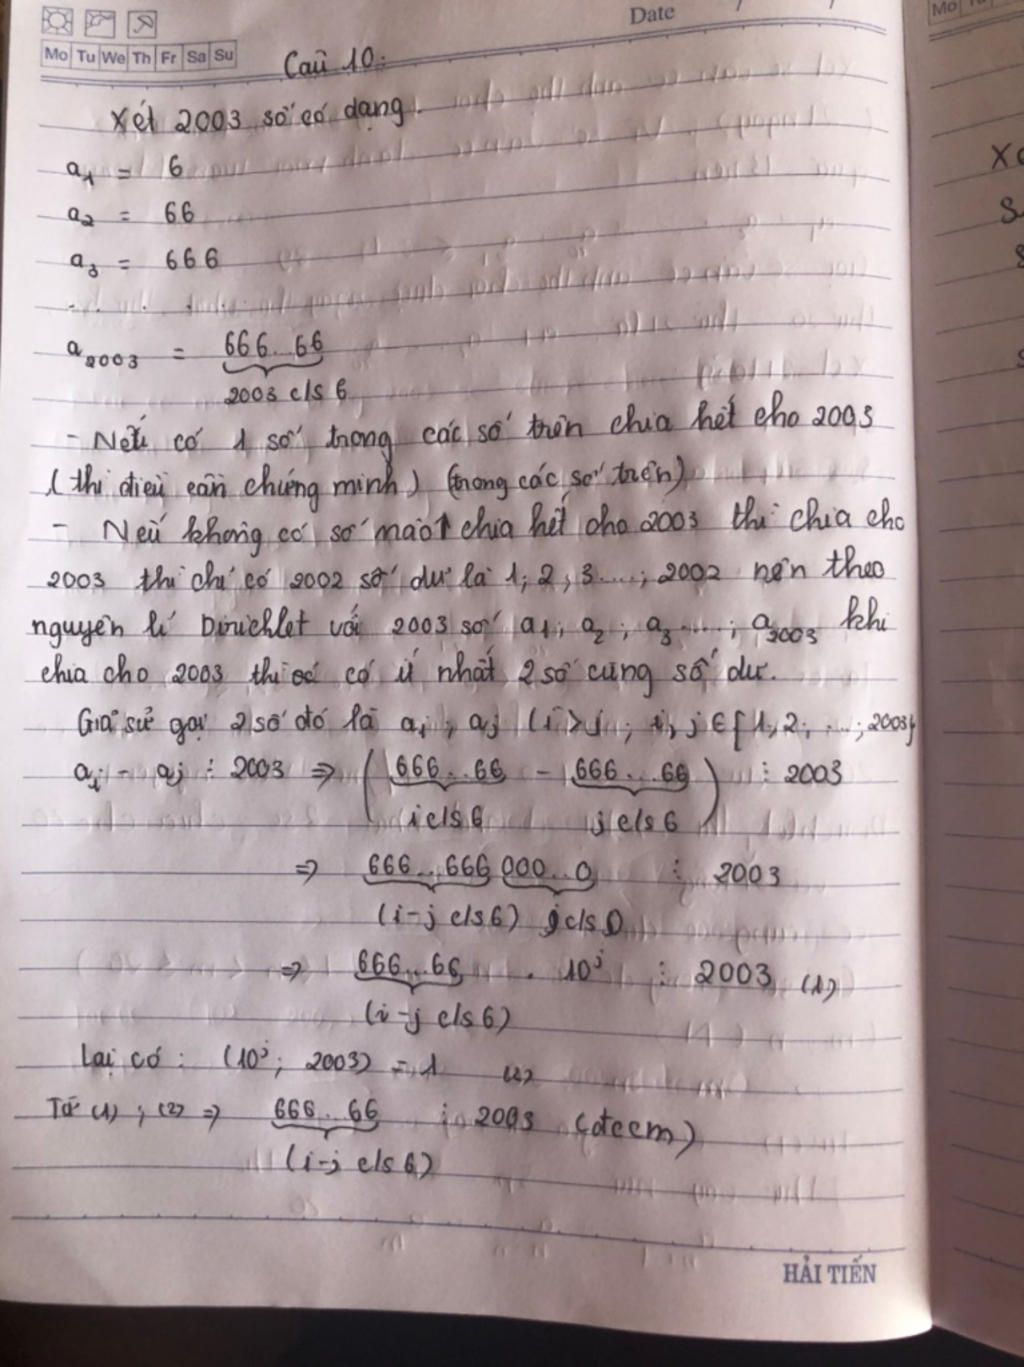 Date / /
Mo Tu We Th Fr Sa Su
Mo
Câu 10:
Xét 2003 số có dạng.
a₁ = 6
a₂ = 66
a₃ = 666
. . . .
a₂₀₀₃ = 666...66
2003 c/s 6
- Nếu có 1 số trong các số trên chia hết cho 2003
(thì điều cần chứng minh) (trong các số trên)
- Nếu không có số nào chia hết cho 2003 thì chia cho
2003 thì chỉ có 2002 số dư là 1; 2; 3....; 2002 nên theo
nguyên lí Dirichlet với 2003 số a₁; a₂; a₃....; a₂₀₀₃ khi
chia cho 2003 thì có ít nhất 2 số cùng số dư.
Giả sử gọi 2 số đó là aᵢ; aⱼ (i>j; i,j ∈ {1; 2; ...; 2003}
aᵢ - aⱼ ⋮ 2003 ⇒ (666...66 - 666...66) ⋮ 2003
i c/s 6 j c/s 6
⇒ 666...666 000...0 ⋮ 2003
(i-j c/s 6) j c/s 0
⇒ 666...66 . 10ʲ ⋮ 2003 (1)
(i-j c/s 6)
Lại có: (10ʲ; 2003) = 1 (2)
Từ (1); (2) ⇒ 666...66 ⋮ 2003 (đccm)
(i-j c/s 6)
HẢI TIẾN